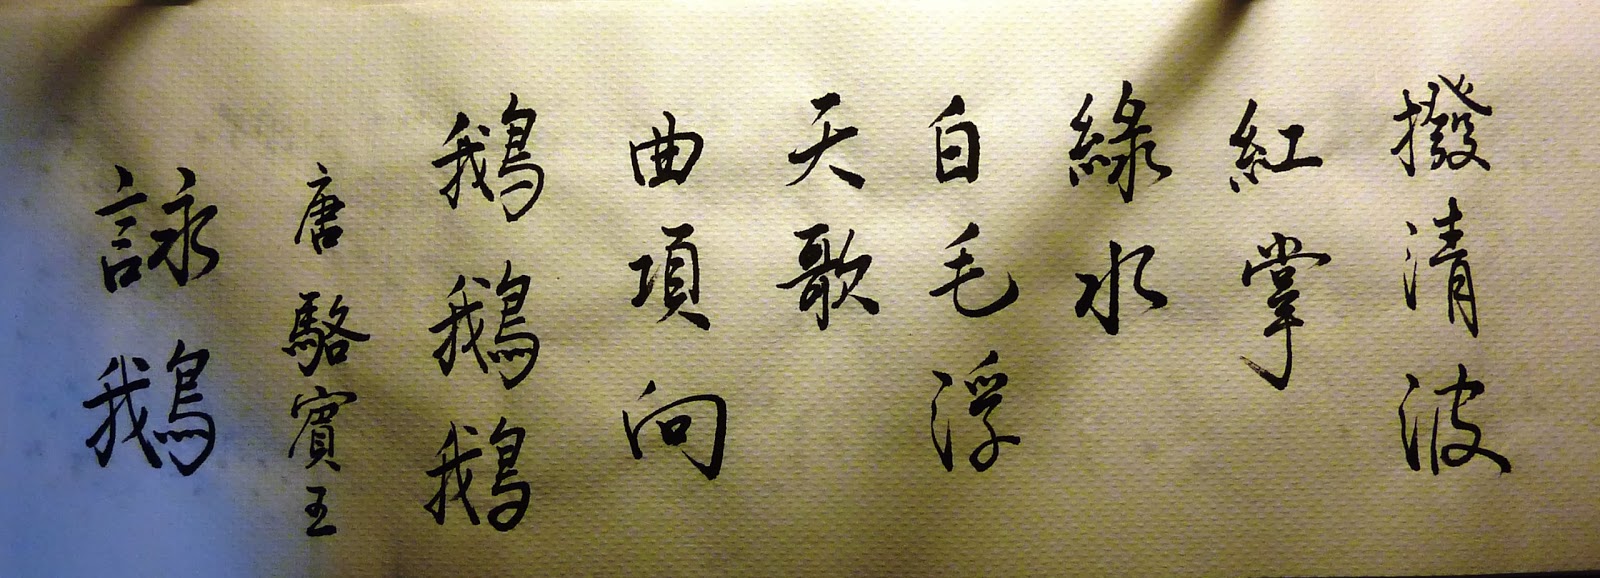 詠鵝
唐駱賓王
鵝鵝鵝
曲項向
天歌
白毛浮
綠水
紅掌
撥清波